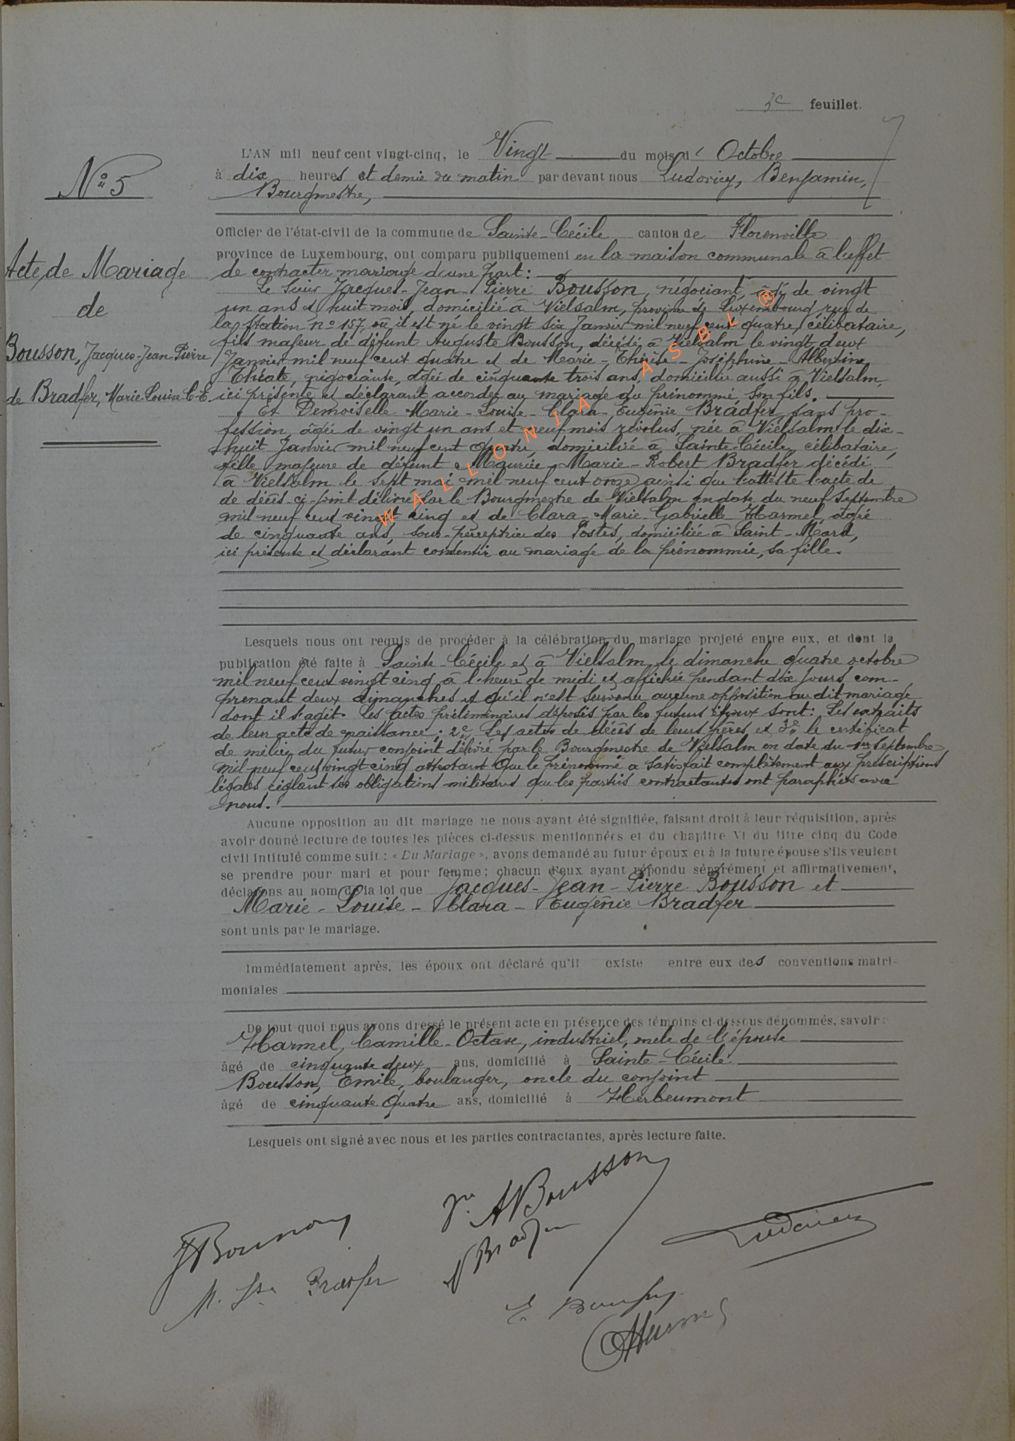 3e feuillet.
L'AN mil neuf cent vingt-cinq, le Vingt du mois d' Octobre
N° 5
à dix heures et demie du matin par devant nous Ludovicy, Benjamin,
Bourgmestre,
Officier de l'état-civil de la commune de Sainte-Cécile canton de Florenville
province de Luxembourg, ont comparu publiquement en la maison communale à l'effet
de contracter mariage d'une part :
Acte de Mariage
de
Bousson, Jacques-Jean-Pierre
de Bradfer, Marie Louise C. E.
Le sieur Jacques-Jean-Pierre Bousson, négociant, âgé de vingt
un ans et huit mois, domicilié à Vielsalm, province de Luxembourg, rue de
la station n° 157 où il est né le vingt six Janvier mil neuf cent quatre, célibataire,
fils majeur de défunt Auguste Bousson, décédé à Vielsalm le vingt deux
Janvier mil neuf cent quatre et de Marie-Thérèse-Joséphine-Albertine
négociante, âgée de cinquante trois ans, domiciliée aussi à Vielsalm,
ici présente et déclarant accorder au mariage du prénommé, son fils.
Et Demoiselle Marie-Louise-Clara-Eugénie Bradfer, sans pro-
fession, âgée de vingt un ans et neuf mois révolus, née à Vielsalm le dix-
huit Janvier mil neuf cent quatre, domiciliée à Sainte-Cécile, célibataire,
fille majeure de défunt Maurice-Marie-Robert Bradfer décédé
à Vielsalm le sept mai mil neuf cent onze ainsi que l'atteste l'acte de
de décès ci-joint délivré par le Bourgmestre de Vielsalm en date du neuf Septembre
mil neuf cent vingt cinq et de Clara-Marie-Gabrielle Harmel, âgée
de cinquante ans, sous-perceptrice des Postes, domiciliée à Saint-Mard,
ici présente et déclarant consentir au mariage de la prénommée, sa fille.
WALLONIA ASBL ®
Lesquels nous ont requis de procéder à la célébration du mariage projeté entre eux, et dont la
publication été faite à Sainte-Cécile et à Vielsalm, le dimanche quatre octobre
mil neuf cent vingt cinq à l'heure de midi et affichée pendant dix jours com-
prenant deux dimanches et qu'il n'est survenu aucune opposition au dit mariage
dont il s'agit. Les actes préliminaires déposés par les futurs époux sont : Les extraits
de leur acte de naissance ; 2° Les actes de décès de leurs pères et 3° le certificat
de milice du futur conjoint délivré par le Bourgmestre de Vielsalm en date du Septembre
mil neuf cent vingt cinq attestant que le prénommé a satisfait complètement aux prescriptions
légales réglant ses obligations militaires que les parties contractantes ont paraphés avec
nous.
Aucune opposition au dit mariage ne nous ayant été signifiée, faisant droit à leur réquisition, après
avoir donné lecture de toutes les pièces ci-dessus mentionnées et du chapitre VI du titre cinq du Code
civil intitulé comme suit : « Du Mariage », avons demandé au futur époux et à la future épouse s'ils veulent
se prendre pour mari et pour femme ; chacun d'eux ayant répondu séparément et affirmativement,
déclarons au nom de la loi que Jacques-Jean-Pierre Bousson et
Marie-Louise-Clara-Eugénie Bradfer
sont unis par le mariage.
Immédiatement après, les époux ont déclaré qu'il existe entre eux des conventions matri-
moniales
De tout quoi nous avons dressé le présent acte en présence des témoins ci-dessous dénommés, savoir :
Harmel, Camille-Octave, industriel, oncle de l'épouse
âgé de cinquante deux ans, domicilié à Sainte-Cécile
Bousson, Emile, boulanger, oncle du conjoint
âgé de cinquante quatre ans, domicilié à Herbeumont
Lesquels ont signé avec nous et les parties contractantes, après lecture faite.
Ve A Bousson
J Bousson
Bradfer
Ludovicy
M. Lse Bradfer
E Bousson
Harmel